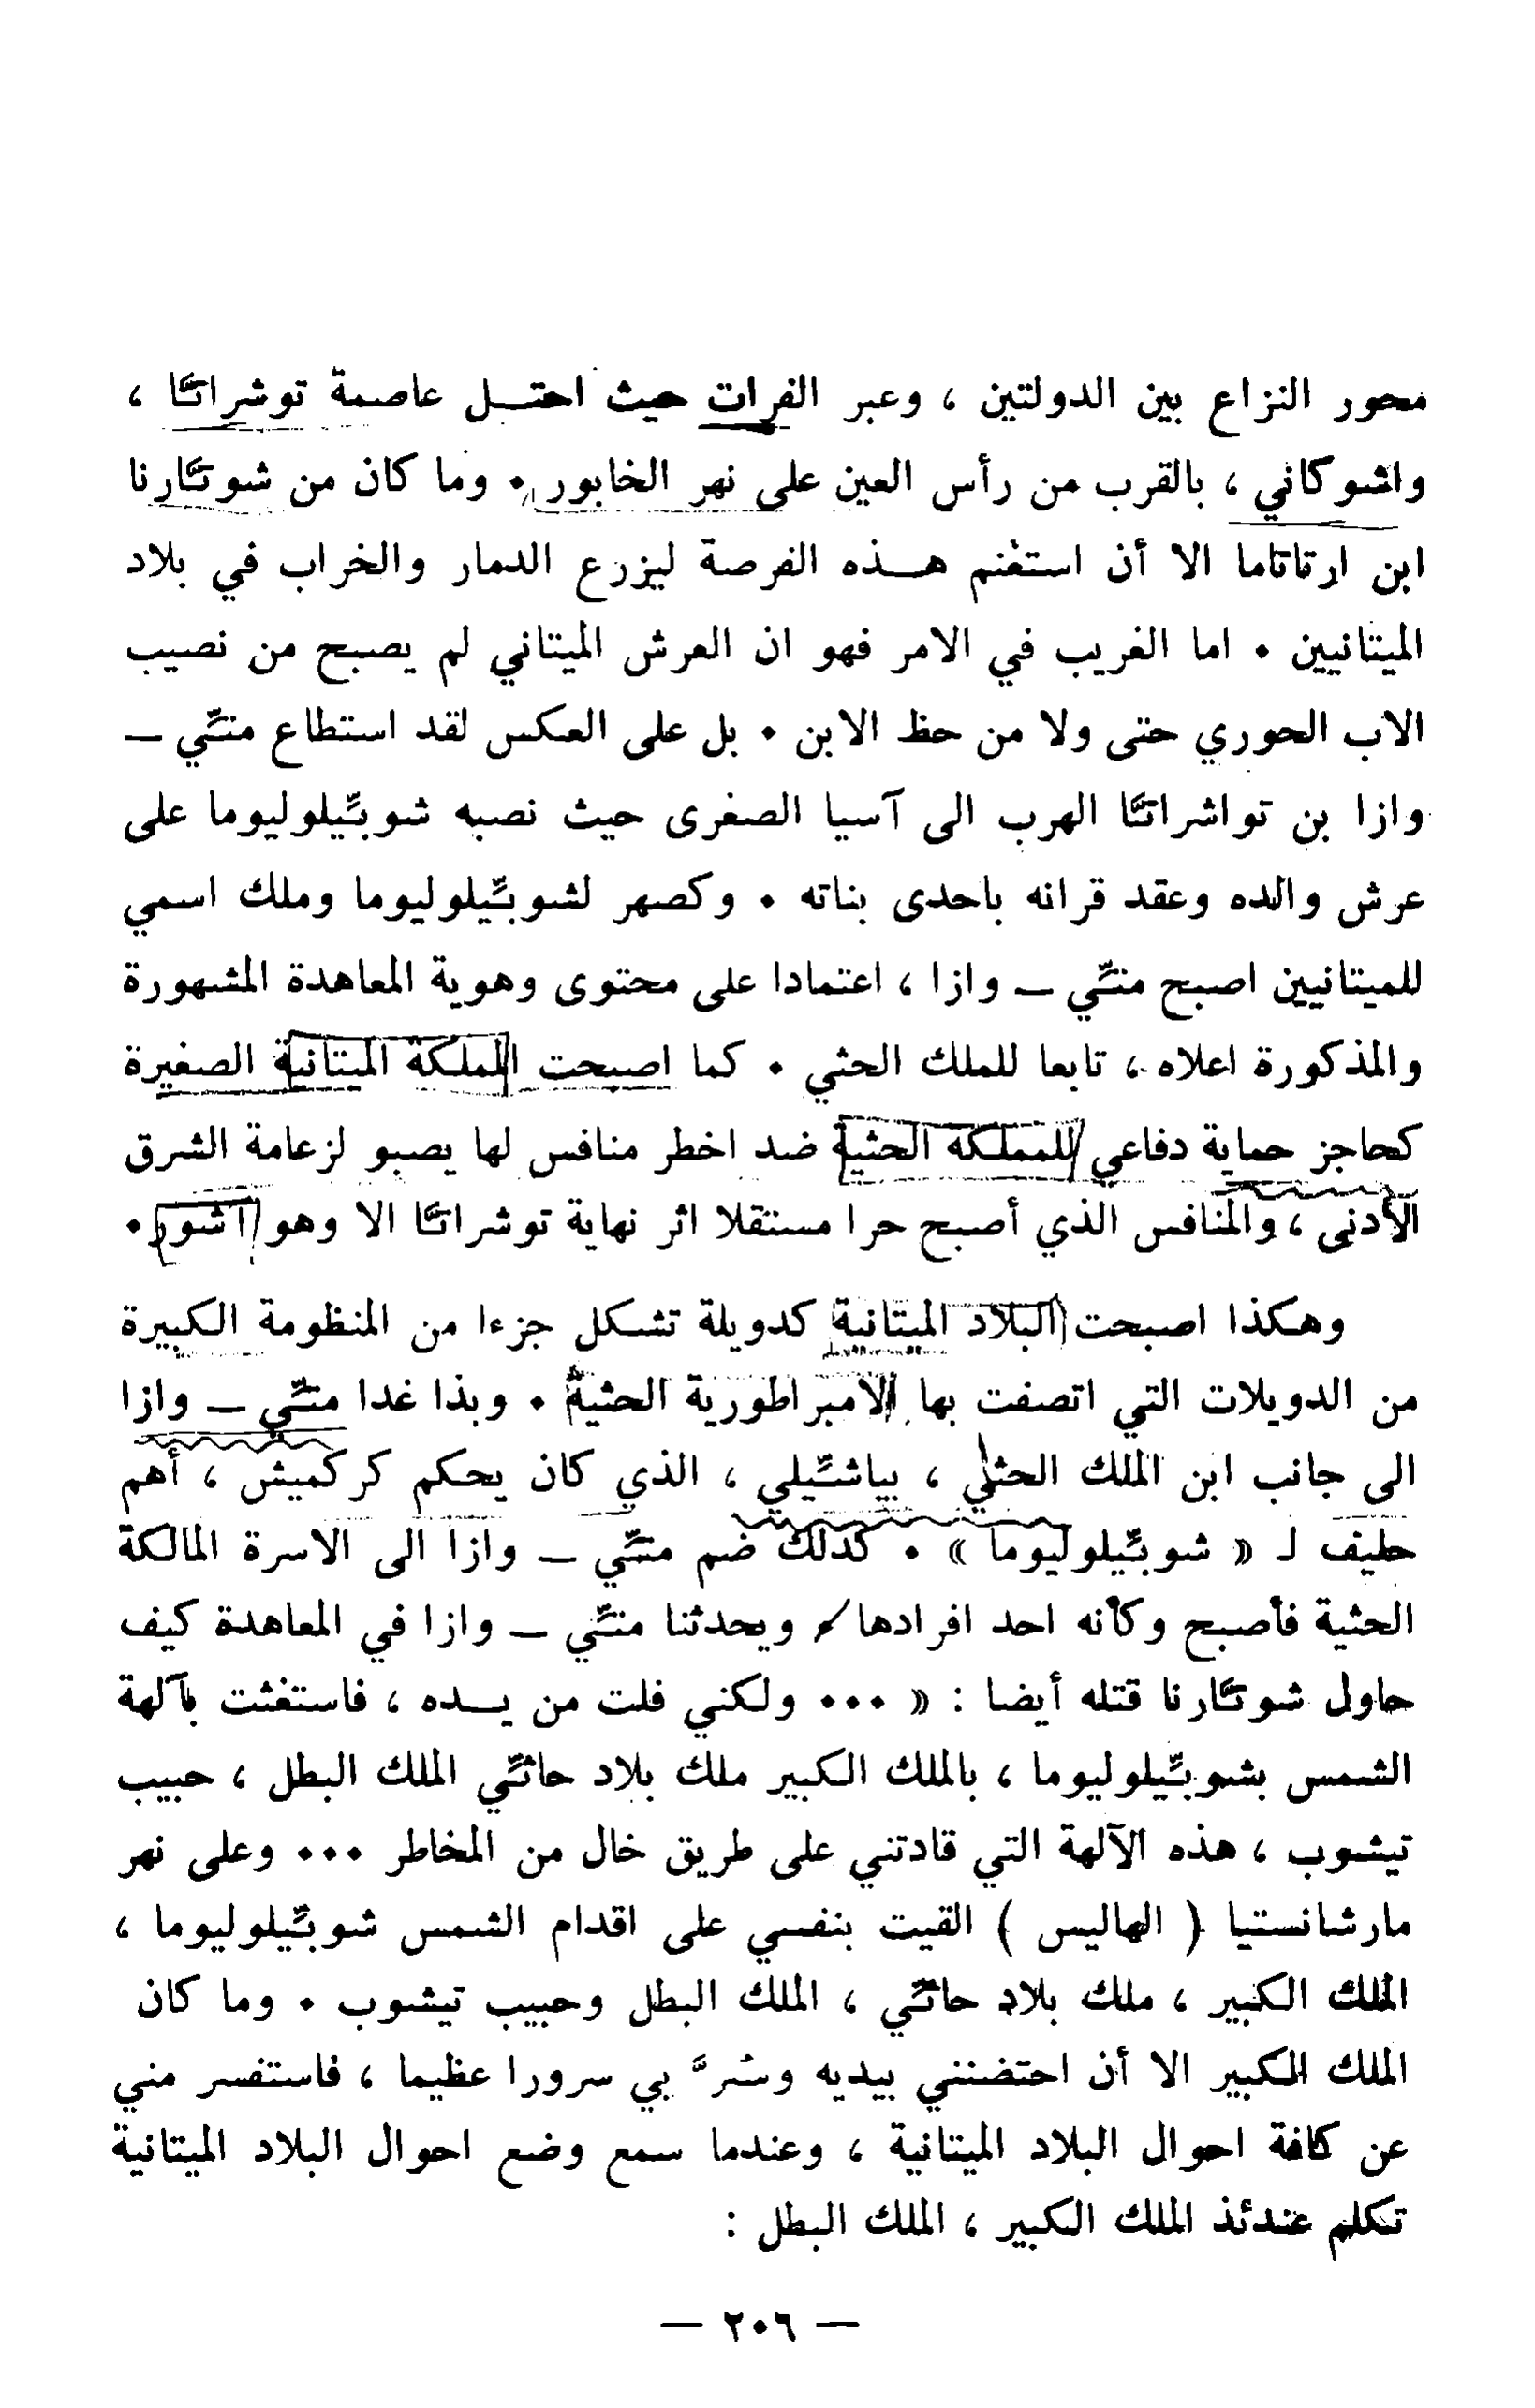 محور النزاع بين الدولتين ، وعبر الفرات حيث احتل عاصمة توشراتّا ،
واشوكاني ، بالقرب من رأس العين على نهر الخابور . وما كان من شوتّارنا
ابن ارتاتاما الا أن استغنم هذه الفرصة ليزرع الدمار والخراب في بلاد
الميتانيين . اما الغريب في الامر فهو ان العرش الميتاني لم يصبح من نصيب
الاب الحوري حتى ولا من حظ الابن . بل على العكس لقد استطاع متّي –
وازا بن تواشراتّا الهرب الى آسيا الصغرى حيث نصبه شوبّيلوليوما على
عرش والده وعقد قرانه باحدى بناته . وكصهر لشوبّيلوليوما وملك اسمي
للميتانيين اصبح متّي – وازا ، اعتمادا على محتوى وهوية المعاهدة المشهورة
والمذكورة اعلاه ، تابعا للملك الحثي . كما اصبحت المملكة الميتانية الصغيرة
كحاجز حماية دفاعي للمملكة الحثية ضد اخطر منافس لها يصبو لزعامة الشرق
الأدنى ، والمنافس الذي أصبح حرا مستقلا اثر نهاية توشراتّا الا وهو آشور .
وهكذا اصبحت البلاد الميتانية كدويلة تشكل جزءا من المنظومة الكبيرة
من الدويلات التي اتصفت بها الامبراطورية الحثية . وبذا غدا متّي – وازا
الى جانب ابن الملك الحثي ، بياشّيلي ، الذي كان يحكم كركميش ، أهم
حليف لـ « شوبّيلوليوما » . كذلك ضم متّي – وازا الى الاسرة المالكة
الحثية فأصبح وكأنه احد افرادها . ويحدثنا متّي – وازا في المعاهدة كيف
حاول شوتّارنا قتله أيضا : « ... ولكني فلت من يده ، فاستغثت بآلهة
الشمس بشوبّيلوليوما ، بالملك الكبير ملك بلاد حاتّي الملك البطل ، حبيب
تيشوب ، هذه الآلهة التي قادتني على طريق خال من المخاطر ... وعلى نهر
مارشانستيا ( الهاليس ) القيت بنفسي على اقدام الشمس شوبّيلوليوما ،
الملك الكبير ، ملك بلاد حاتّي ، الملك البطل وحبيب تيشوب . وما كان
الملك الكبير الا أن احتضنني بيديه وسُرَّ بي سرورا عظيما ، فاستفسر مني
عن كافة احوال البلاد الميتانية ، وعندما سمع وضع احوال البلاد الميتانية
تكلم عندئذ الملك الكبير ، الملك البطل :
– ٢٠٦ –